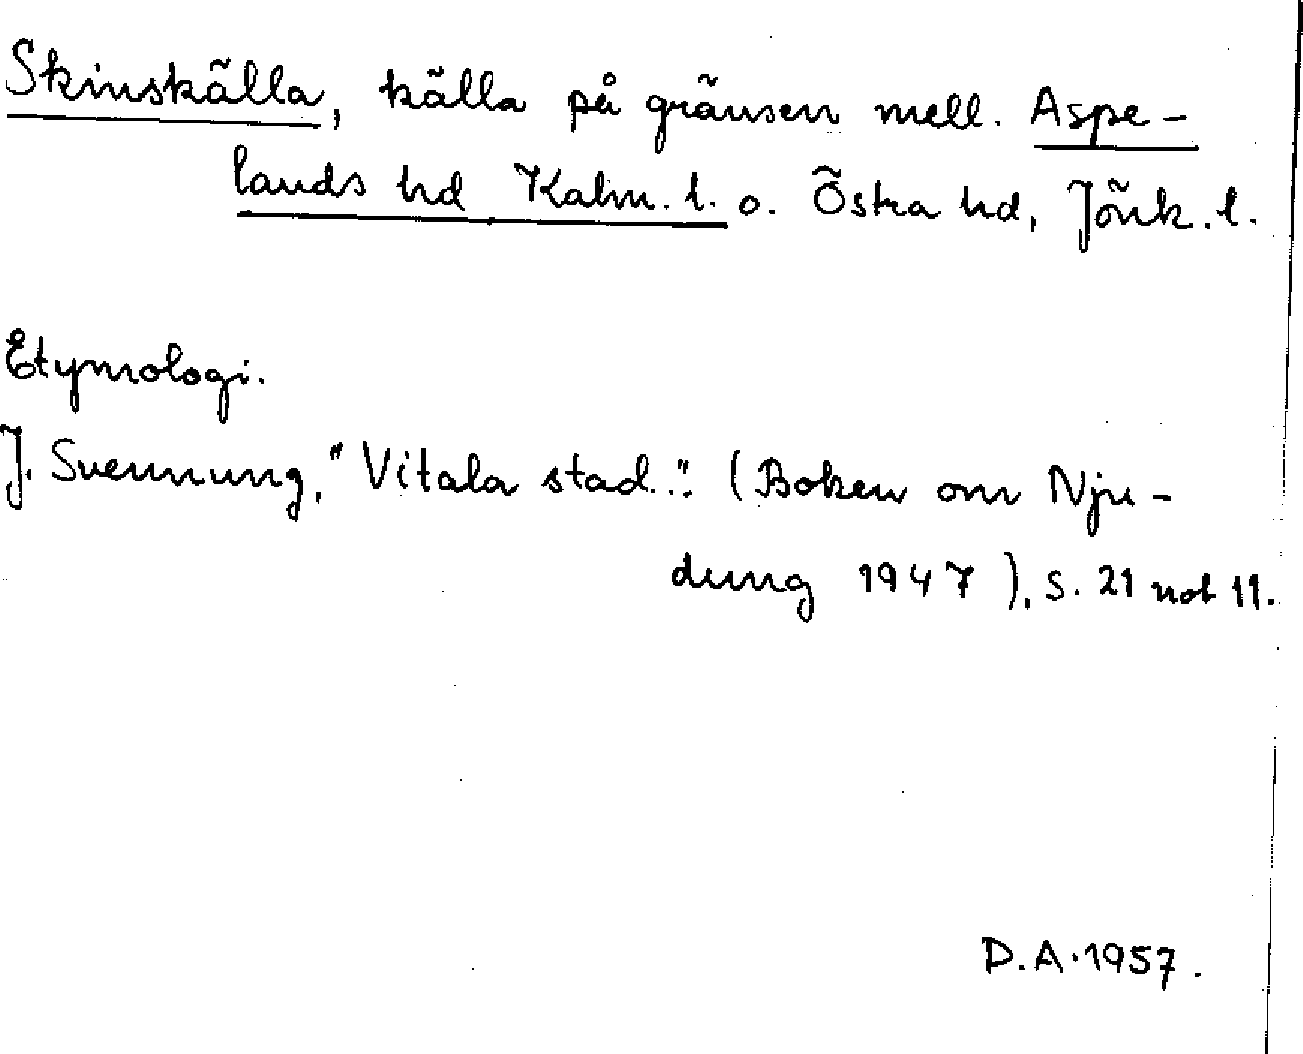 Skinskälla, källa på gränsen mell. Aspe-
lands hd Kalm. l. o. Östra hd, Jönk. l.
Etymologi.
J. Svennung, "Vitala stad.". (Boken om Nju-
dung 1947), s. 21 not 11.
D.A. 1957.